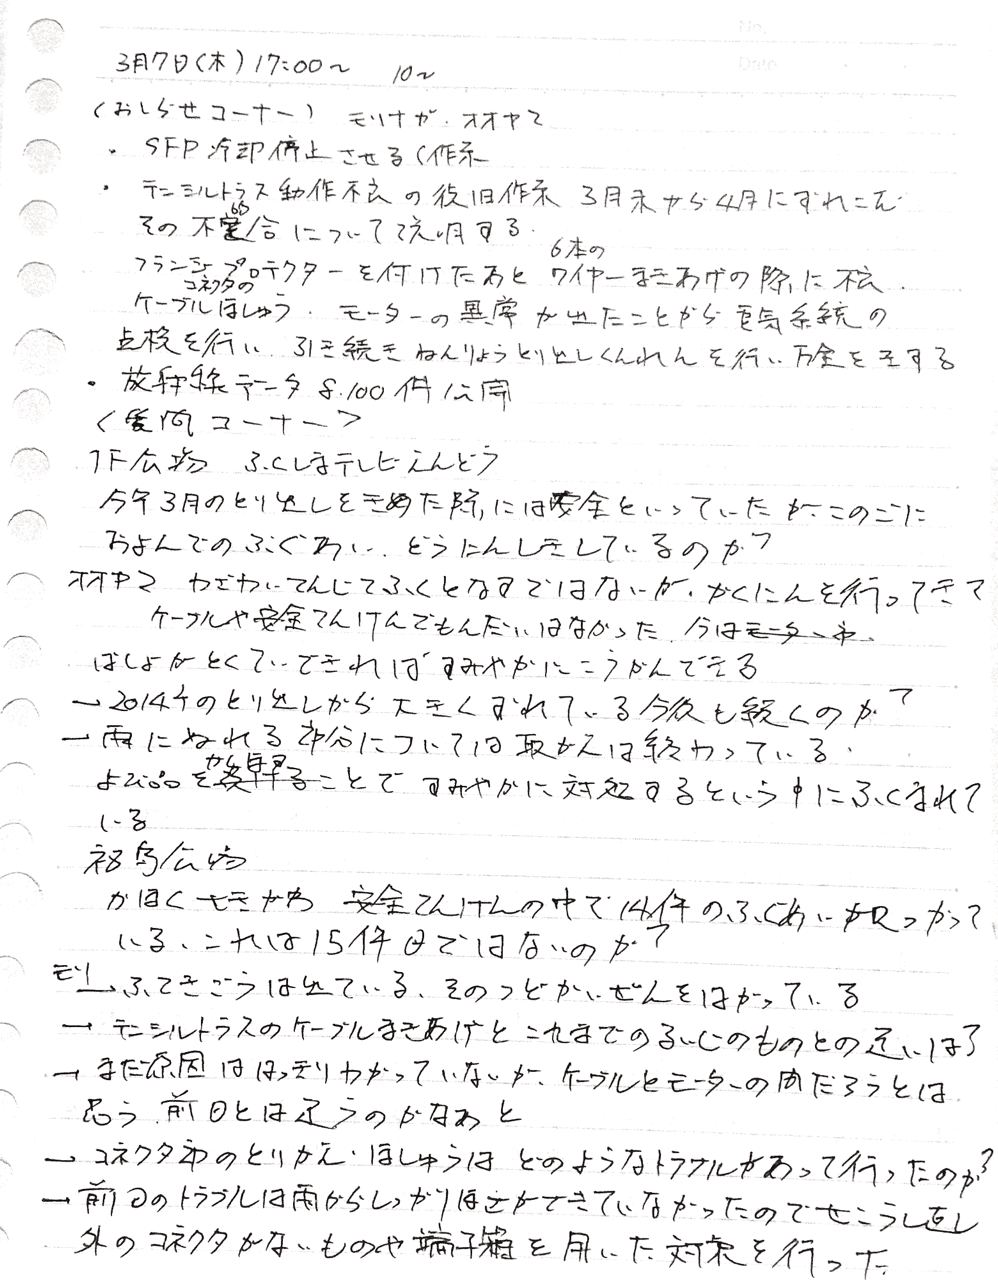 No.
Date
3月7日(木) 17:00〜 10〜
(おしらせコーナー) モリナガ・オオヤマ
・SFP冷却停止させる(作系
・テンシルトラス動作不良の復旧作系 3月末から4月にずれこむ
その不具合について説明する.
フランジプロテクターを付けたあと 6本の ワイヤーまきあげの際に不良
コネクタの
ケーブルほしゅう. モーターの異常が出たことから電気系統の
点検を行い 引き続きねんりょうとり出しくんれんを行い万全を き する
・放射線データ 8.100件公開
<質問コーナー>
1F広物 ふくしまテレビえんどう
今年3月のとり出しをきめた際には安全といっていたが、このごに
およんでのふぐあい、どうにんしきしているのか?
オオヤマ わざわいてんじてふくとなすではないが、かくにんを行ってきて
ケーブルや安全てんけんでもんだいはなかった 今はモーター や
ばしょがとくていできればすみやかにこうかんできる
→2014年のとり出しから大きくずれている今後も続くのか?
→雨にぬれる部分については取かえは終わっている.
よび品を ことですみやかに対処するという中にふくまれて
いる
福島広物
かほく せきかわ 安全てんけんの中で14件のふぐあいが見つかって
いる、これは15件目ではないのか?
モリ→ふてきごうは出ている、そのつどかいぜんをはかっている
→テンシルトラスのケーブルまきあげとこれまでのるいじのものとの違いは?
→まだ原因ははっきりわかっていないが、ケーブルとモーターの間だろうとは
思う 前回とは違うのかなぁと
→コネクタ部のとりかえ・ほしゅうはどのようなトラブルがあって行ったのか?
→前回のトラブルは雨からしっかりほごができていなかったのでせこうし直し
外のコネクタがないものや端子箱を用いた対策を行った